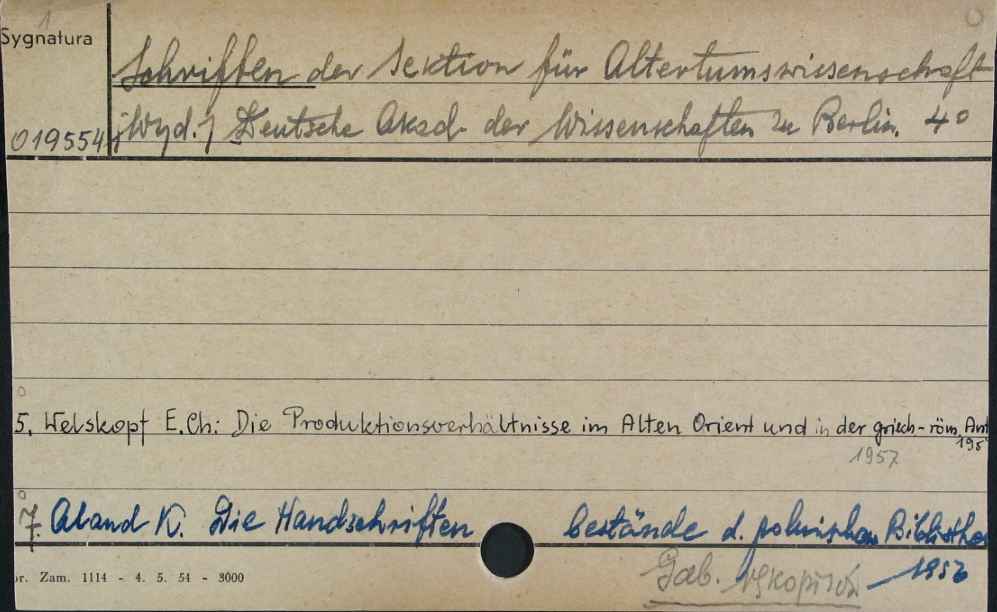 1
Sygnatura
Schriften der Sektion für Altertumswissenschaft
019554 [Wyd.] Deutsche Akad. der Wissenschaften zu Berlin. 4°
5. Welskopf E.Ch: Die Produktionsverhältnisse im Alten Orient und in der griech-röm. Ant
195
1957
7. Aland K. Die Handschriften bestände d. polnischen Bibliothe
Gab. rękopisów 1956
r. Zam. 1114 - 4. 5. 54 - 3000